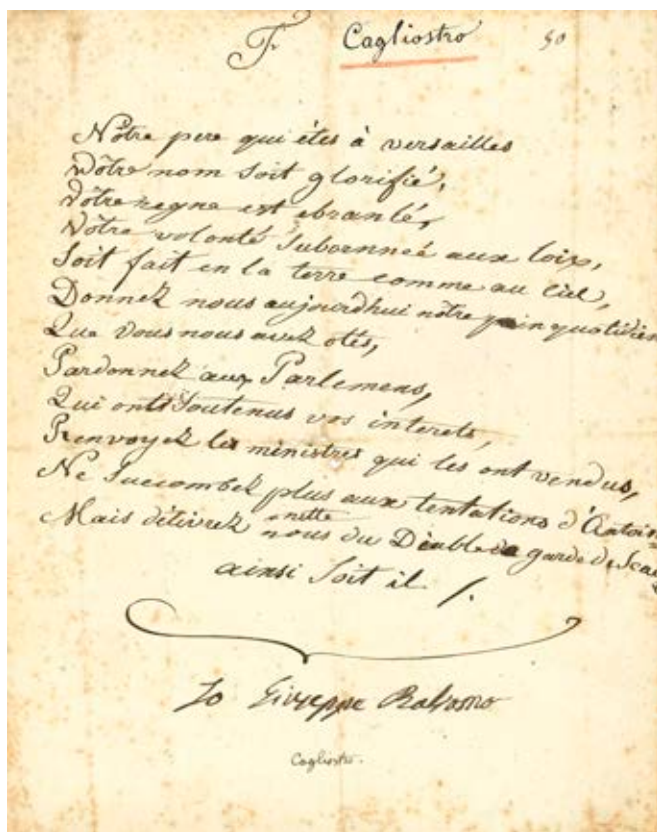 F. Cagliostro 50
Nôtre pere qui étes à versailles
Vôtre nom soit glorifié,
Vôtre regne est ebranlé,
Vôtre volonté subornneé aux loix,
Soit fait en la terre comme au ciel,
Donnez nous aujourdhui nôtre pain quotidien
Que vous nous avez otés,
Pardonnez aux Parlemens,
Qui ont soutenus vos interets,
Renvoyez les ministres qui les ont vendus,
Ne succombez plus aux tentations
Mais délivrez nous du Diable garde
ainsi soit il /.
Io Giuseppe Balsamo
Cagliostro.